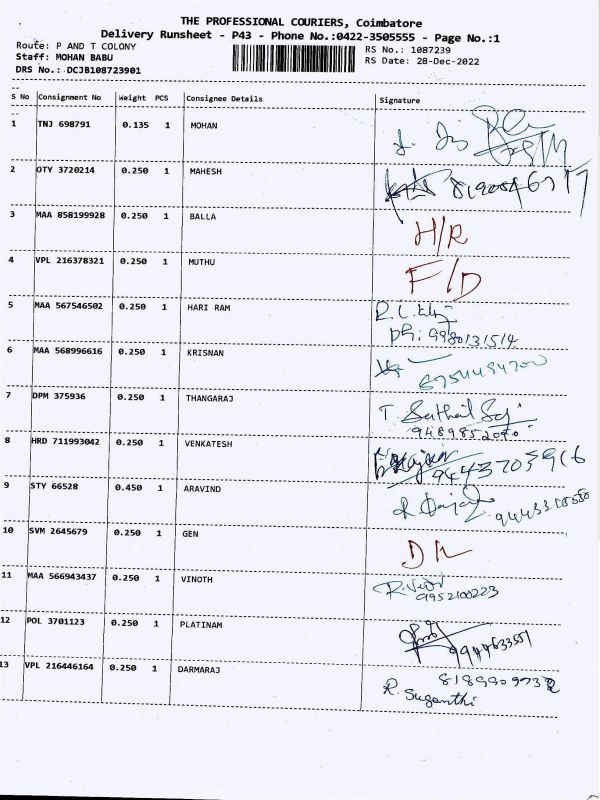 THE PROFESSIONAL COURIERS, Coimbatore
Delivery Runsheet - P43 - Phone No.:0422-3505555 - Page No.:1
Route: P AND T COLONY
RS No.: 1087239
Staff: MOHAN BABU
RS Date: 28-Dec-2022
DRS No.: DCJB108723901
S No Consignment No Weight PCS Consignee Details Signature
1 TNJ 698791 0.135 1 MOHAN
2 OTY 3720214 0.250 1 MAHESH
3 MAA 858199928 0.250 1 BALLA H/R
4 VPL 216378321 0.250 1 MUTHU F/D
5 MAA 567546502 0.250 1 HARI RAM
ph: 9980131514
6 MAA 568996616 0.250 1 KRISNAN
7 DPM 375936 0.250 1 THANGARAJ
8 HRD 711993042 0.250 1 VENKATESH 9443705916
9 STY 66528 0.450 1 ARAVIND
10 SVM 2645679 0.250 1 GEN
11 MAA 566943437 0.250 1 VINOTH
9952100223
12 POL 3701123 0.250 1 PLATINAM
13 VPL 216446164 0.250 1 DARMARAJ
R. Suganthi